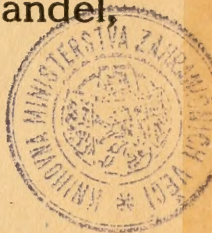 andel,
KNIHOVNA MINISTERSTVA ZAHRANIČNÍCH VĚCÍ *